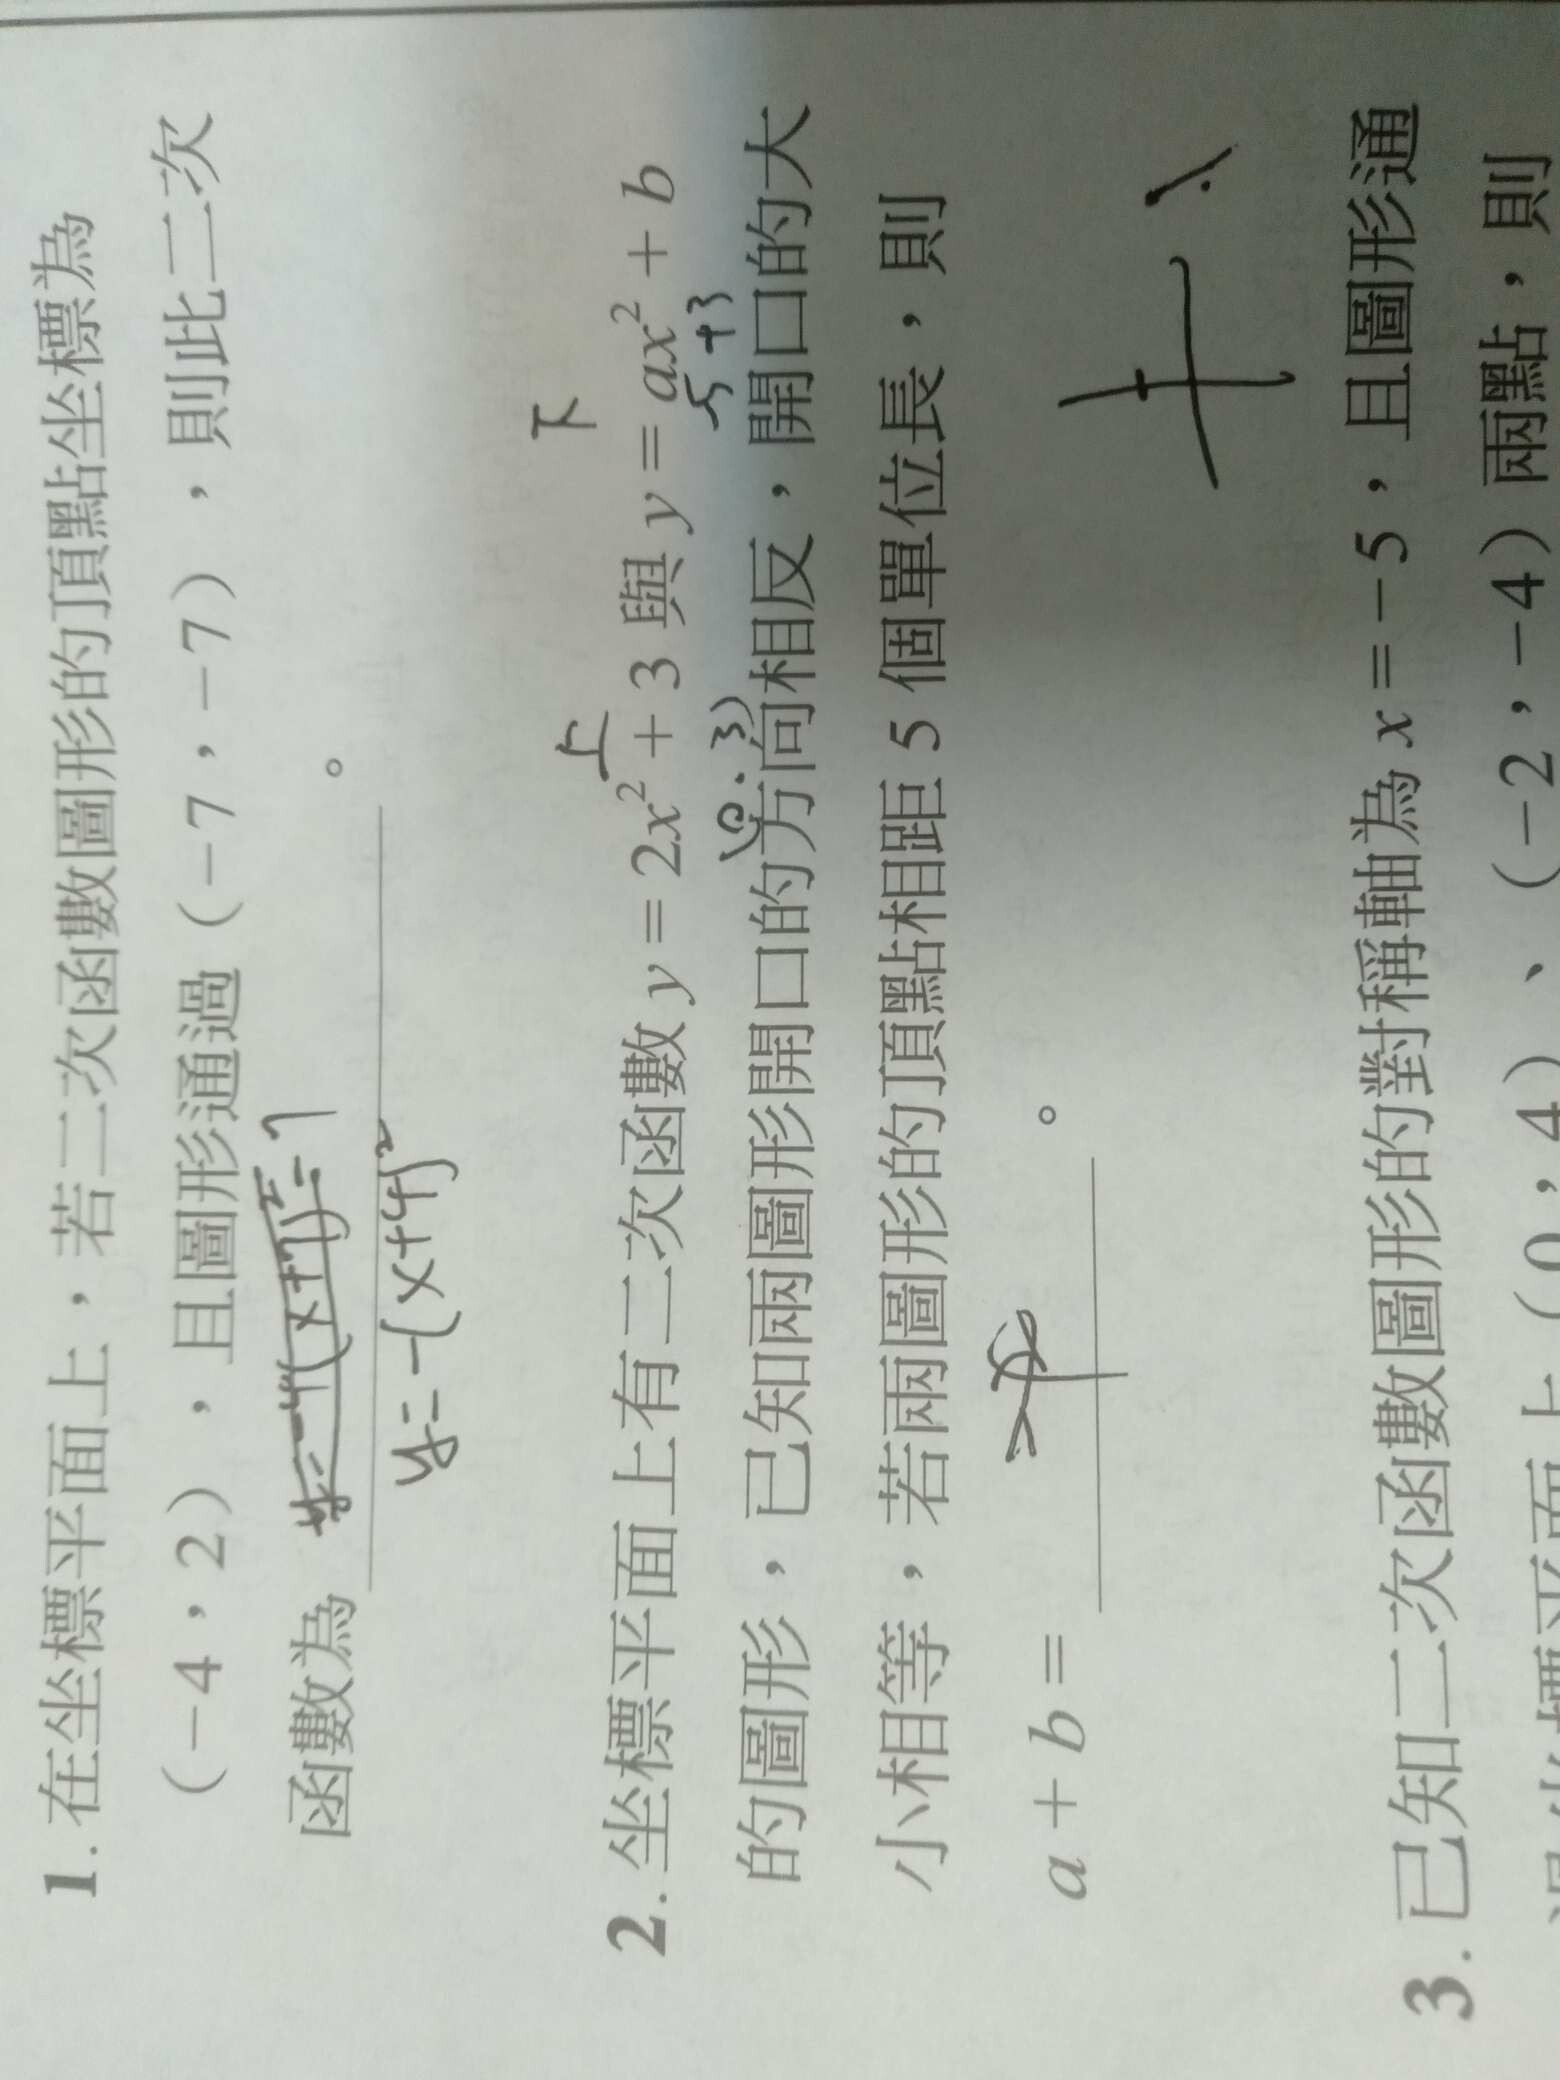 1.在坐標平面上，若二次函數圖形的頂點坐標為
（−4，2），且圖形通過（−7，−7），則此二次
函數為 。
y=-(x+4)²
上 下
2.坐標平面上有二次函數 y = 2x² + 3 與 y = ax² + b
(0.3) 5+3
的圖形，已知兩圖形開口的方向相反，開口的大
小相等，若兩圖形的頂點相距 5 個單位長，則
a + b = 。
3.已知二次函數圖形的對稱軸為 x = −5，且圖形通
（0，4）、（−2，−4）兩點，則